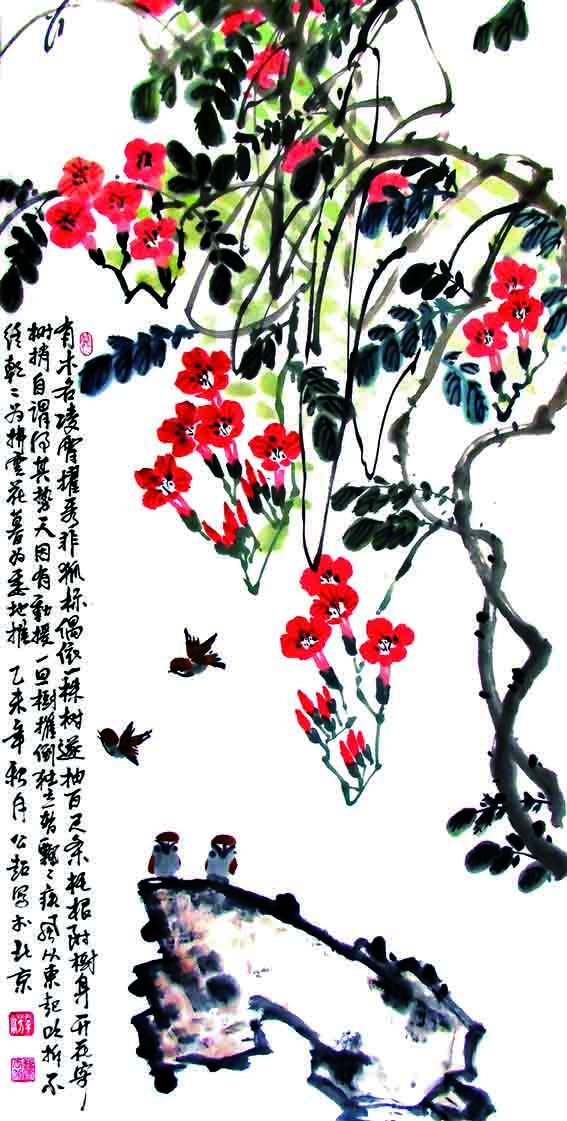 有木名凌霄擢秀非孤标偶依一株树遂抽百尺条托根附樹身开花寄
树梢自谓得其势无因有動摇一旦樹摧倒独立暂飄〻疾風从東起吹折不
终朝〻为拂雲花暮为委地樵 乙未年秋月公超写於北京